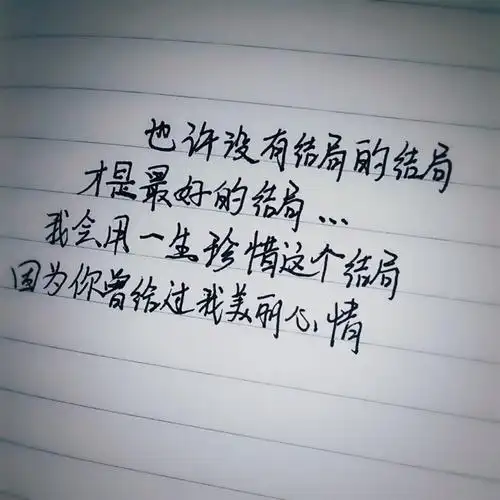 也许没有结局的结局
才是最好的结局...
我会用一生珍惜这个结局
因为你曾给过我美丽心情